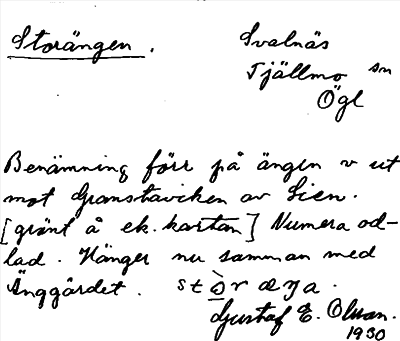 Storängen. Svalnäs
Tjällmo sn
Ögl
Benämning förr på ängen v ut
mot Granstaviken av Sien.
[grönt å ek. kartan] Numera od-
lad. Hänger nu samman med
Änggärdet. stò̱ræŋa.
Gustaf E. Olsson.
1930